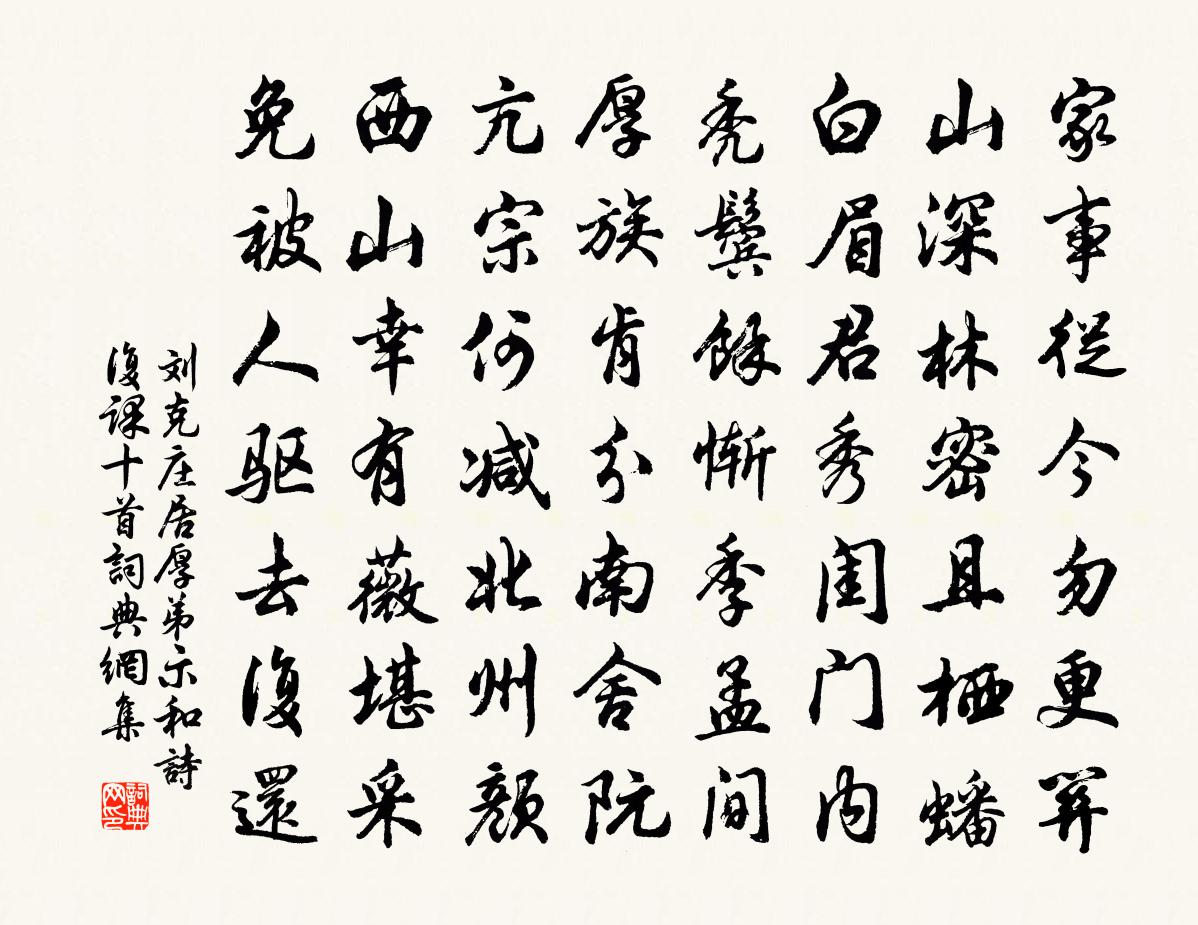 家事從今勿更關
山深林密且栖蟠
白眉君秀閨门内
秃鬓餘惭季孟间
厚族肯分南舍阮
亢宗何减北州顔
西山幸有薇堪采
免被人驱去復還
刘克庄居厚弟示和詩
復課十首詞典網集
詞典网印